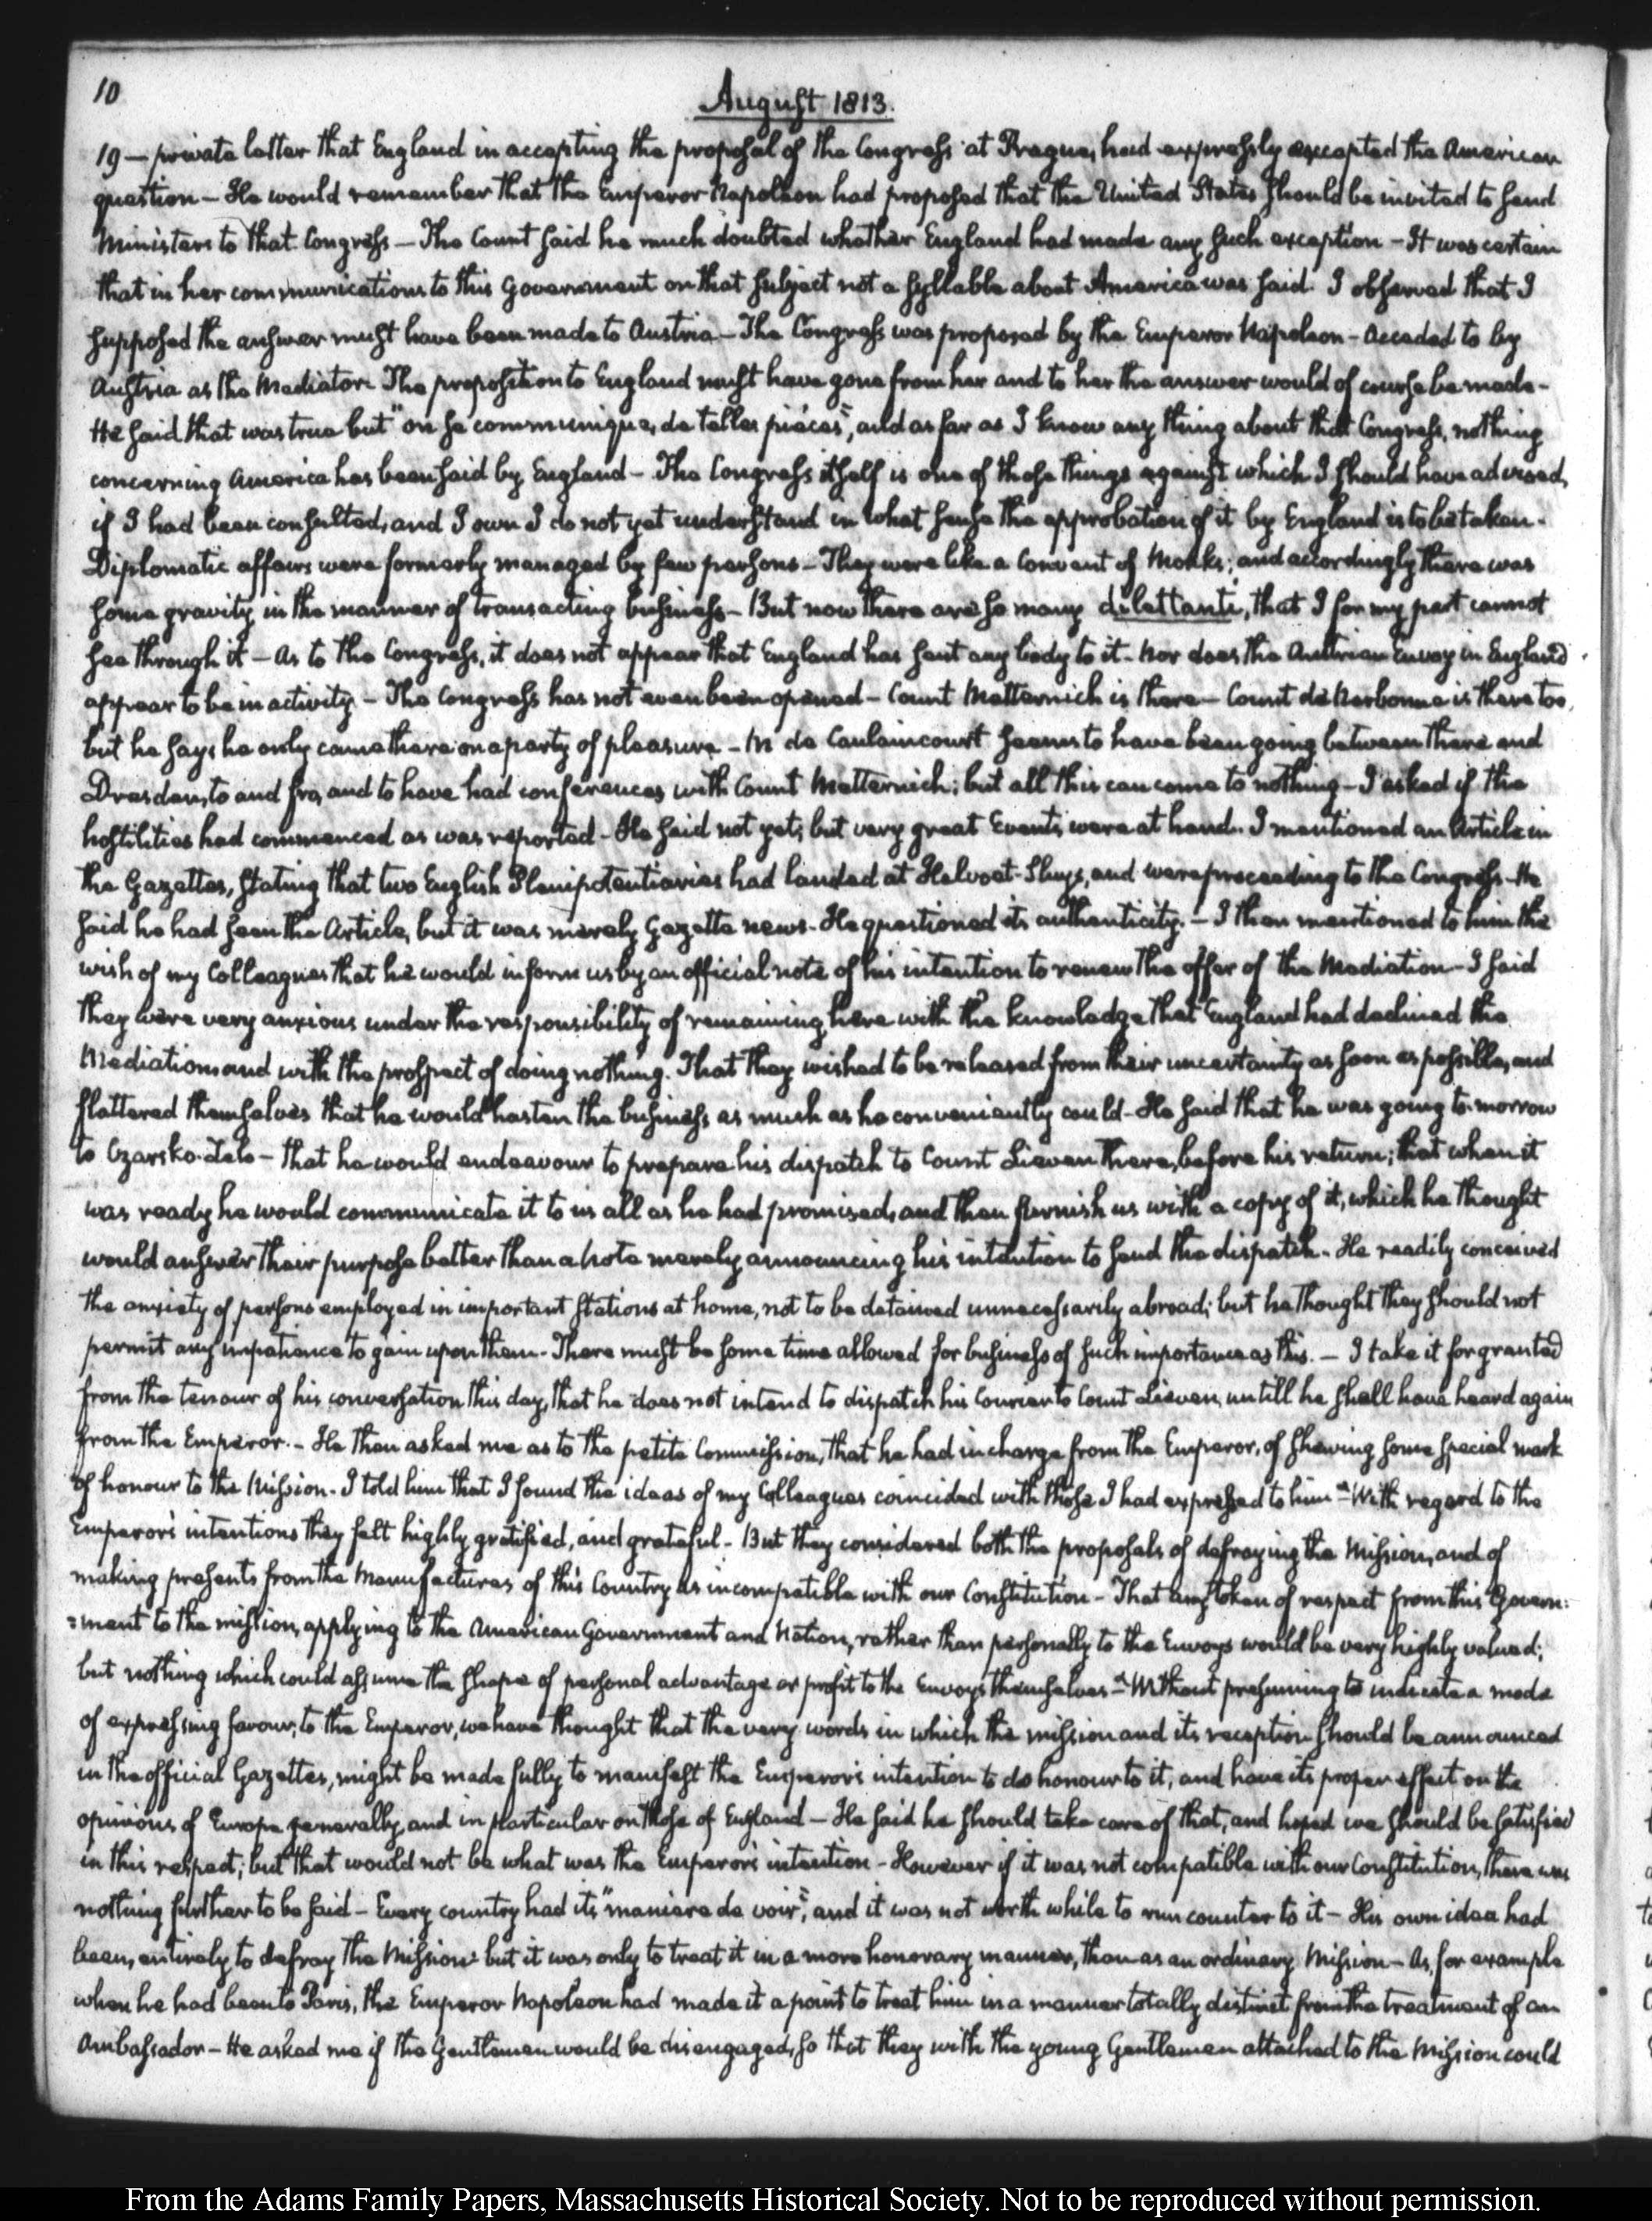 10
August 1813.
19 — private letter that England in accepting the proposal of the Congress at Prague, had expressly excepted the American
question – He would remember that the Emperor Napoleon had proposed that the United States should be invited to send
Ministers to that Congress – The Count said he much doubted whether England had made any such exception – It was certain
that in her communications to this Government on that subject not a syllable about America was said. I observed that I
supposed the answer must have been made to Austria – The Congress was proposed by the Emperor Napoleon – acceded to by
Austria as the Mediator. The proposition to England must have gone from her and to her the answer would of course be made –
He said that was true but "on se communique, de telles piéces", and as far as I know any thing about that Congress, nothing
concerning America has been said by England – The Congress itself is one of those things against which I should have advised,
if I had been consulted, and I own I do not yet understand in what sense the approbation of it by England is to be taken –
Diplomatic affairs were formerly managed by few persons – They were like a Convent of Monks; and accordingly there was
some gravity in the manner of transacting business – But now there are so many dilettanti, that I for my part cannot
see through it – As to the Congress, it does not appear that England has sent any body to it – Nor does the Austrian Envoy in England
appear to be in activity – The Congress has not even been opened – Count Metternich is there – Count de Narbonne is there too,
but he says he only came there on a party of pleasure – M de Caulaincourt seems to have been going between there and
Dresden, to and fro, and to have had conferences with Count Metternich; but all this can come to nothing – I asked if the
hostilities had commenced as was reported – He said not yet; but very great Events were at hand. I mentioned an Article in
the Gazettes, stating that two English Plenipotentiaries had landed at Helvoet-Sluys, and were proceeding to the Congress – He
said he had seen the Article, but it was merely Gazette news – He questioned its authenticity. – I then mentioned to him the
wish of my Colleagues that he would inform us by an official note of his intention to renew the offer of the Mediation – I said
they were very anxious under the responsibility of remaining here with the knowledge that England had declined the
Mediation and with the prospect of doing nothing. That they wished to be released from their uncertainty as soon as possible, and
flattered themselves that he would hasten the business as much as he conveniently could – He said that he was going to-morrow
to Czarsko-Zelo – that he would endeavour to prepare his dispatch to Count Lieven there, before his return; that when it
was ready he would communicate it to us all as he had promised, and then furnish us with a copy of it, which he thought
would answer their purpose better than a Note merely announcing his intention to send the dispatch. He readily conceived
the anxiety of persons employed in important stations at home, not to be detained unnecessarily abroad; but he thought they should not
permit any impatience to gain upon them – There must be some time allowed for business of such importance as this. – I take it for granted
from the tenour of his conversation this day, that he does not intend to dispatch his Courier to Count Lieven, untill he shall have heard again
from the Emperor. – He then asked me as to the petite Commission, that he had in charge from the Emperor, of shewing some special mark
of honour to the Mission – I told him that I found the ideas of my Colleagues coincided with those I had expressed to him – With regard to the
Emperor's intentions they felt highly gratified, and grateful – But they considered both the proposals of defraying the Mission, and of
making presents from the Manufactures of this Country as incompatible with our Constitution – That any token of respect from this Govern:
=ment to the mission, applying to the American Government and Nation, rather than personally to the Envoys would be very highly valued;
but nothing which could assume the shape of personal advantage or profit to the Envoys themselves – Without presuming to indicate a mode
of expressing favour, to the Emperor, we have thought that the very words in which the mission and its reception should be announced
in the official Gazettes, might be made fully to manifest the Emperor's intention to do honour to it, and have its proper effect on the
opinions of Europe generally, and in particular on those of England – He said he should take care of that, and hoped we should be satisfied
in this respect; but that would not be what was the Emperor's intention – However if it was not compatible with our Constitution, there was
nothing further to be said – Every country had its "maniere de voir", and it was not worth while to run counter to it – His own idea had
been, entirely to defray the Mission: but it was only to treat it in a more honorary manner, than as an ordinary Mission – As, for example
when he had been to Paris, the Emperor Napoleon had made it a point to treat him in a manner totally distinct from the treatment of an
Ambassador – He asked me if the Gentlemen would be disengaged, so that they with the young Gentlemen attached to the Mission could
From the Adams Family Papers, Massachusetts Historical Society. Not to be reproduced without permission.